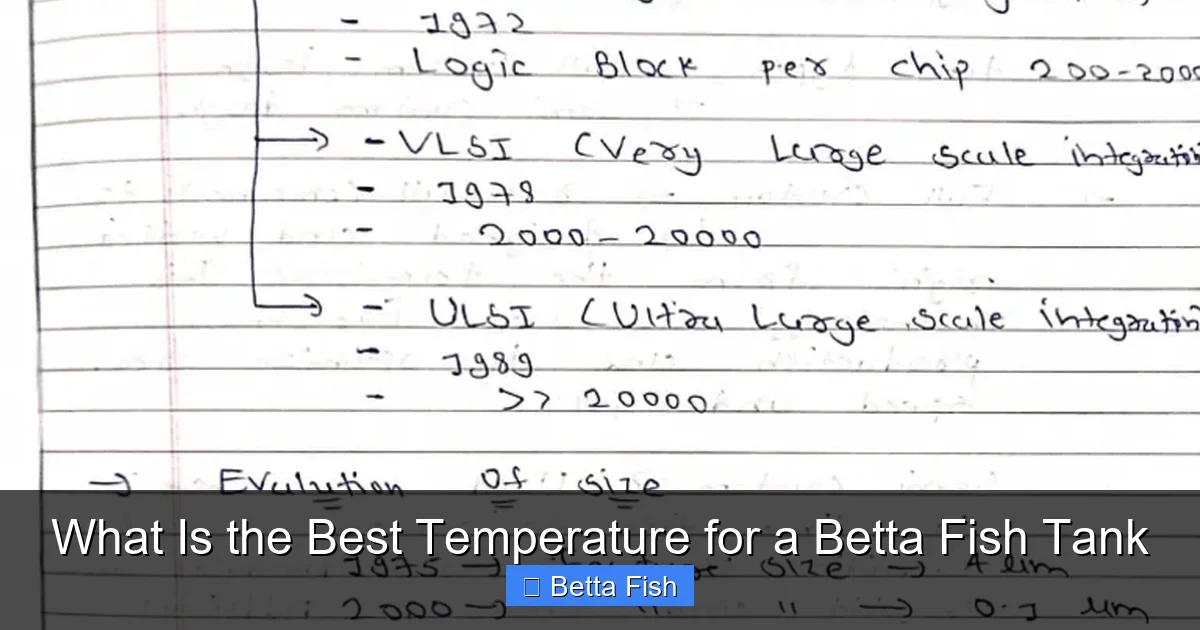 - 1972
- Logic Block per chip 200-2000
- VLSI (Very Large scale integration
- 1978
- 2000-20000
- ULSI (Ultra Large scale integration
- 1989
- >> 20000
→ Evalution of size
What Is the Best Temperature for a Betta Fish Tank
1975 → size → 4 um
Betta Fish
2000 → " " → 0.1 um